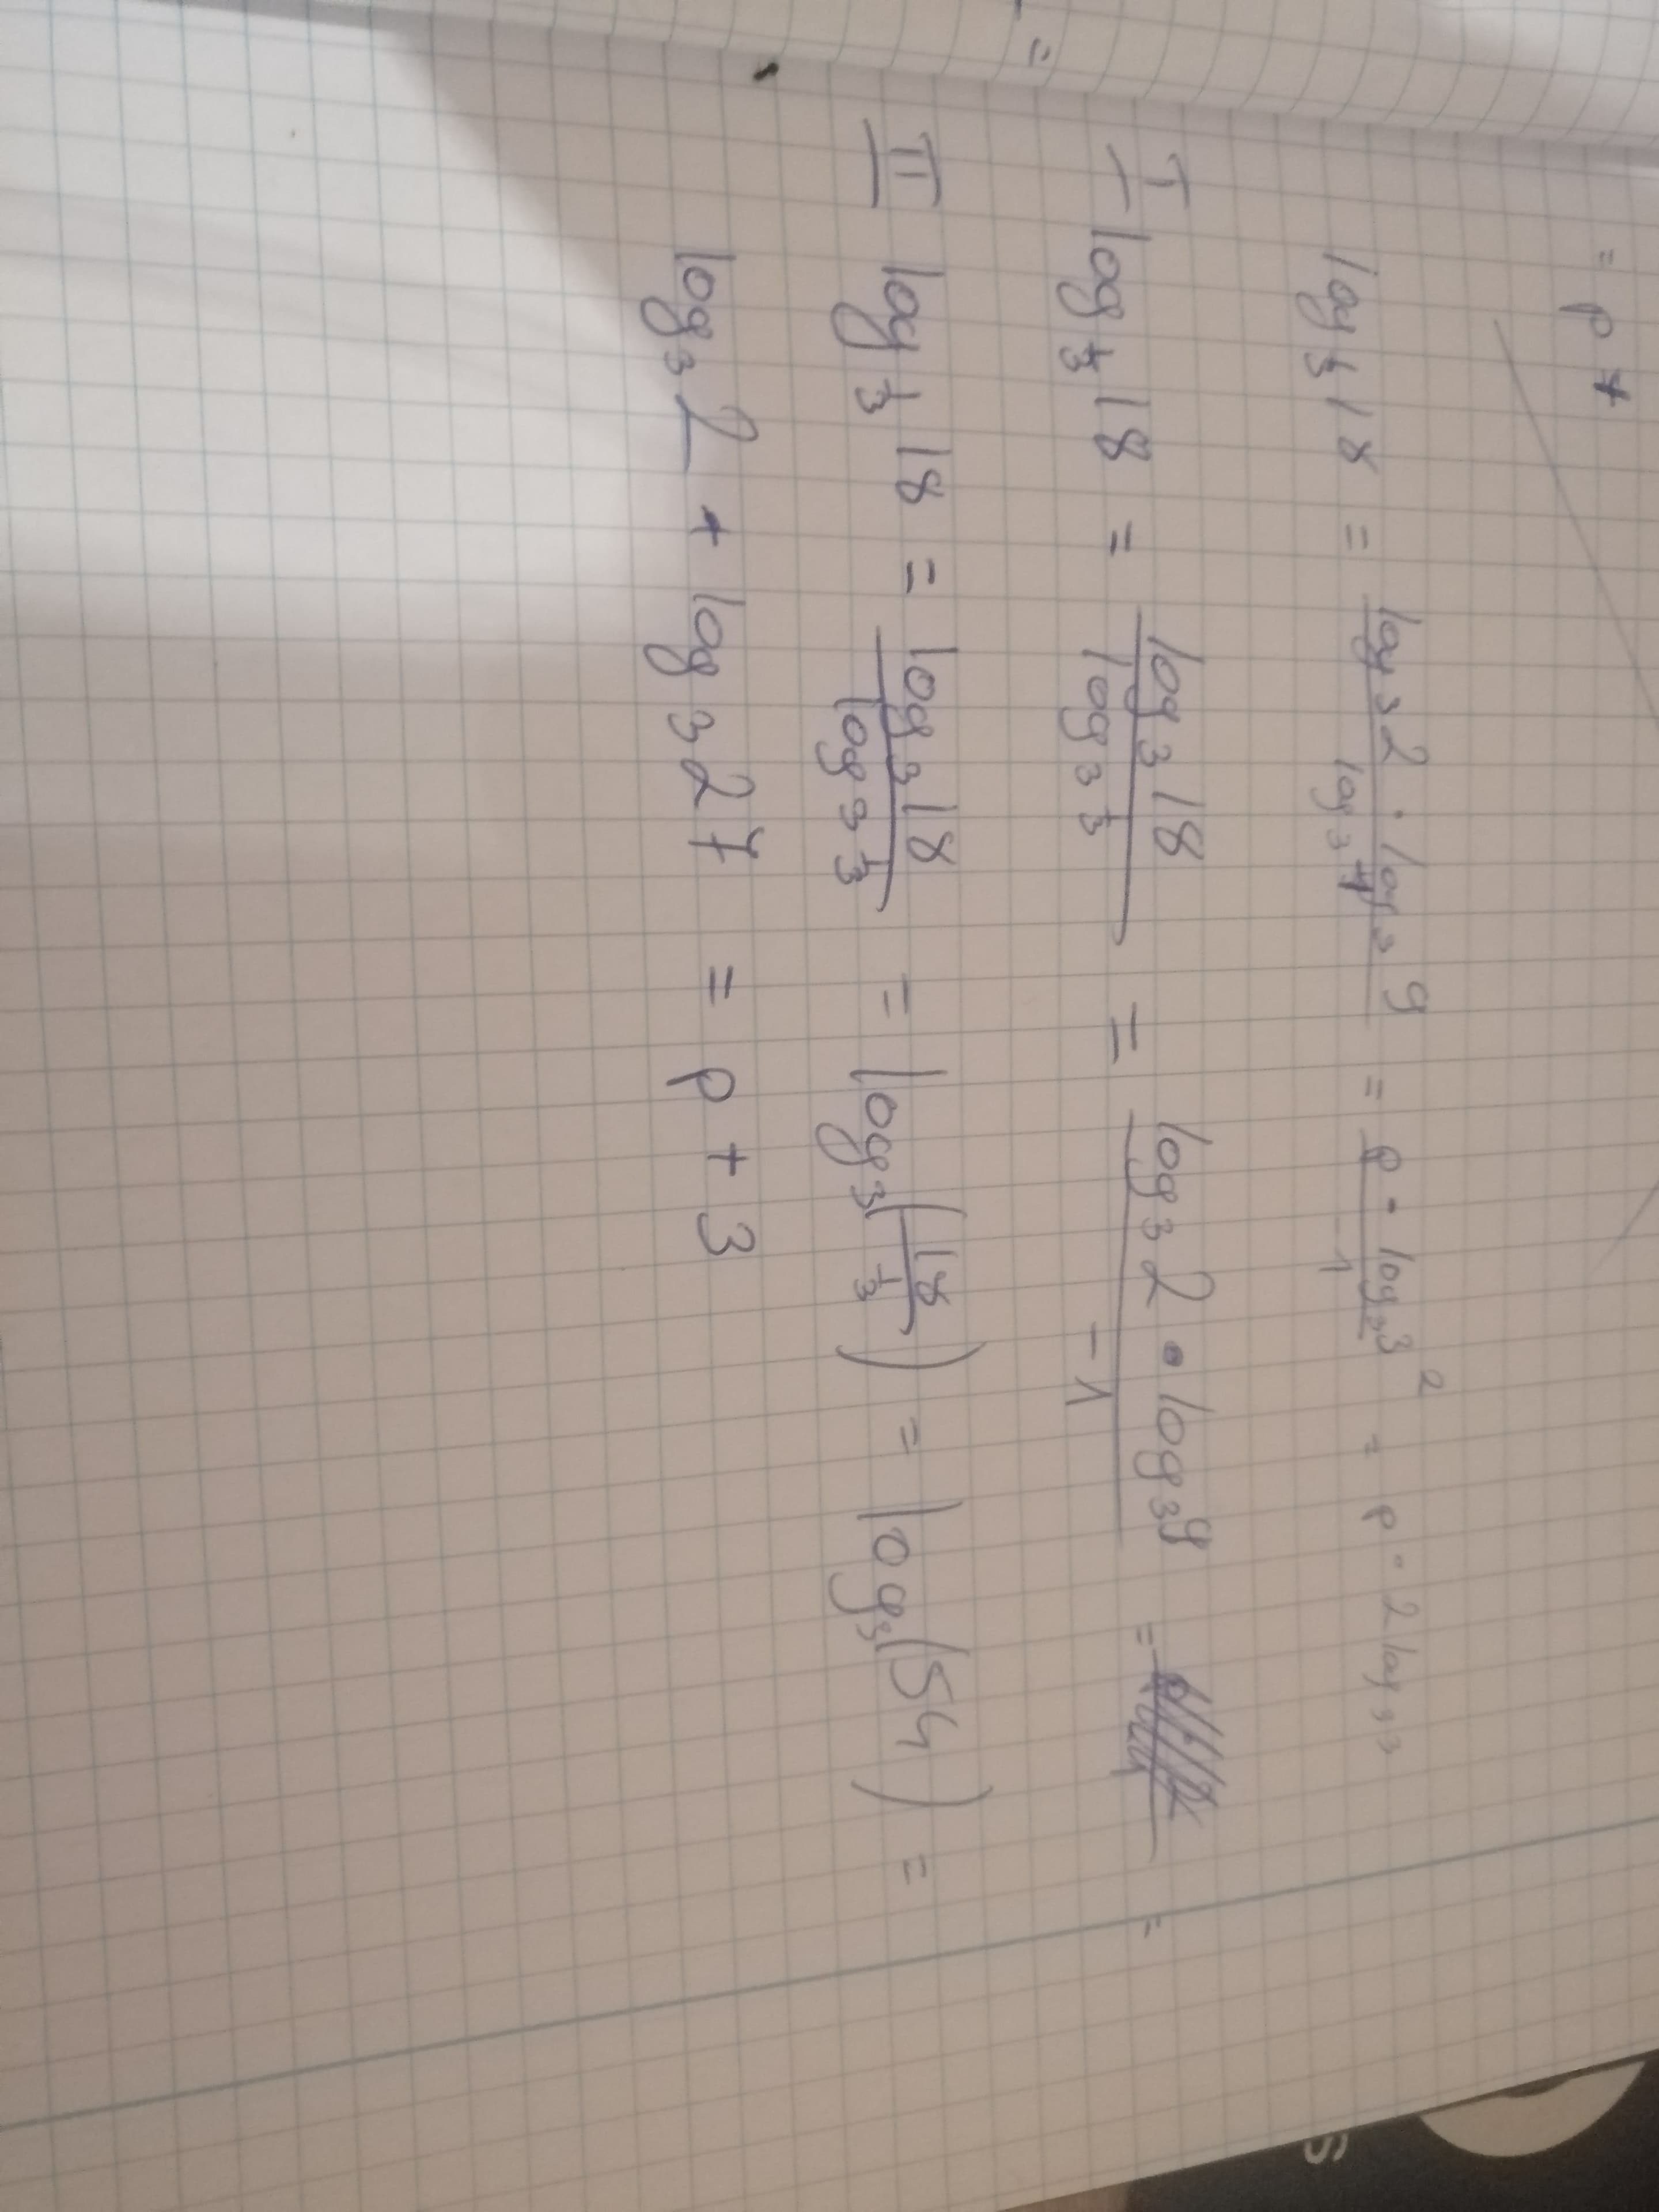 = p +
log_{1/3} 18 = \frac{log_3 2 · log_3 9}{log_3 1} = \frac{p · log_3 3^2}{-1} = p · 2 log_3 3
I log_{1/3} 18 = \frac{log_3 18}{log_3 \frac{1}{3}} = \frac{log_3 2 · log_3 9}{-1} = =
=
II log_{1/3} 18 = \frac{log_3 18}{log_3 \frac{1}{3}} = log_3 (\frac{18}{\frac{1}{3}}) = log_3 (54) =
log_3 2 + log_3 27 = p + 3
s